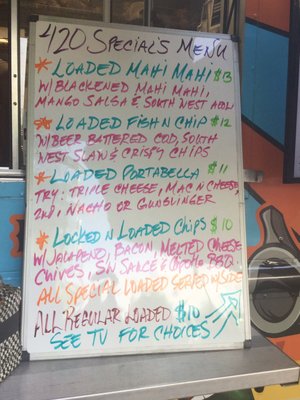 420 Special's Menu
* Loaded Mahi Mahi $13
w/ Blackened Mahi Mahi,
Mango Salsa & South Nest
* Loaded Fish n Chip $12
w/ Beer Battered Cod, South
Nest Slaw & Crispy Chips
* Loaded Portabella $11
Try: Triple Cheese, Mac n Cheese,
Nacho or Gunslinger
* Locked n Loaded Chips $10
w/ Jalapeno, Bacon, Melted Cheese
Chives, SW Sauce & BBQ
All Special Loaded Served w/ Side
All Regular Loaded $10
See TV for Choices